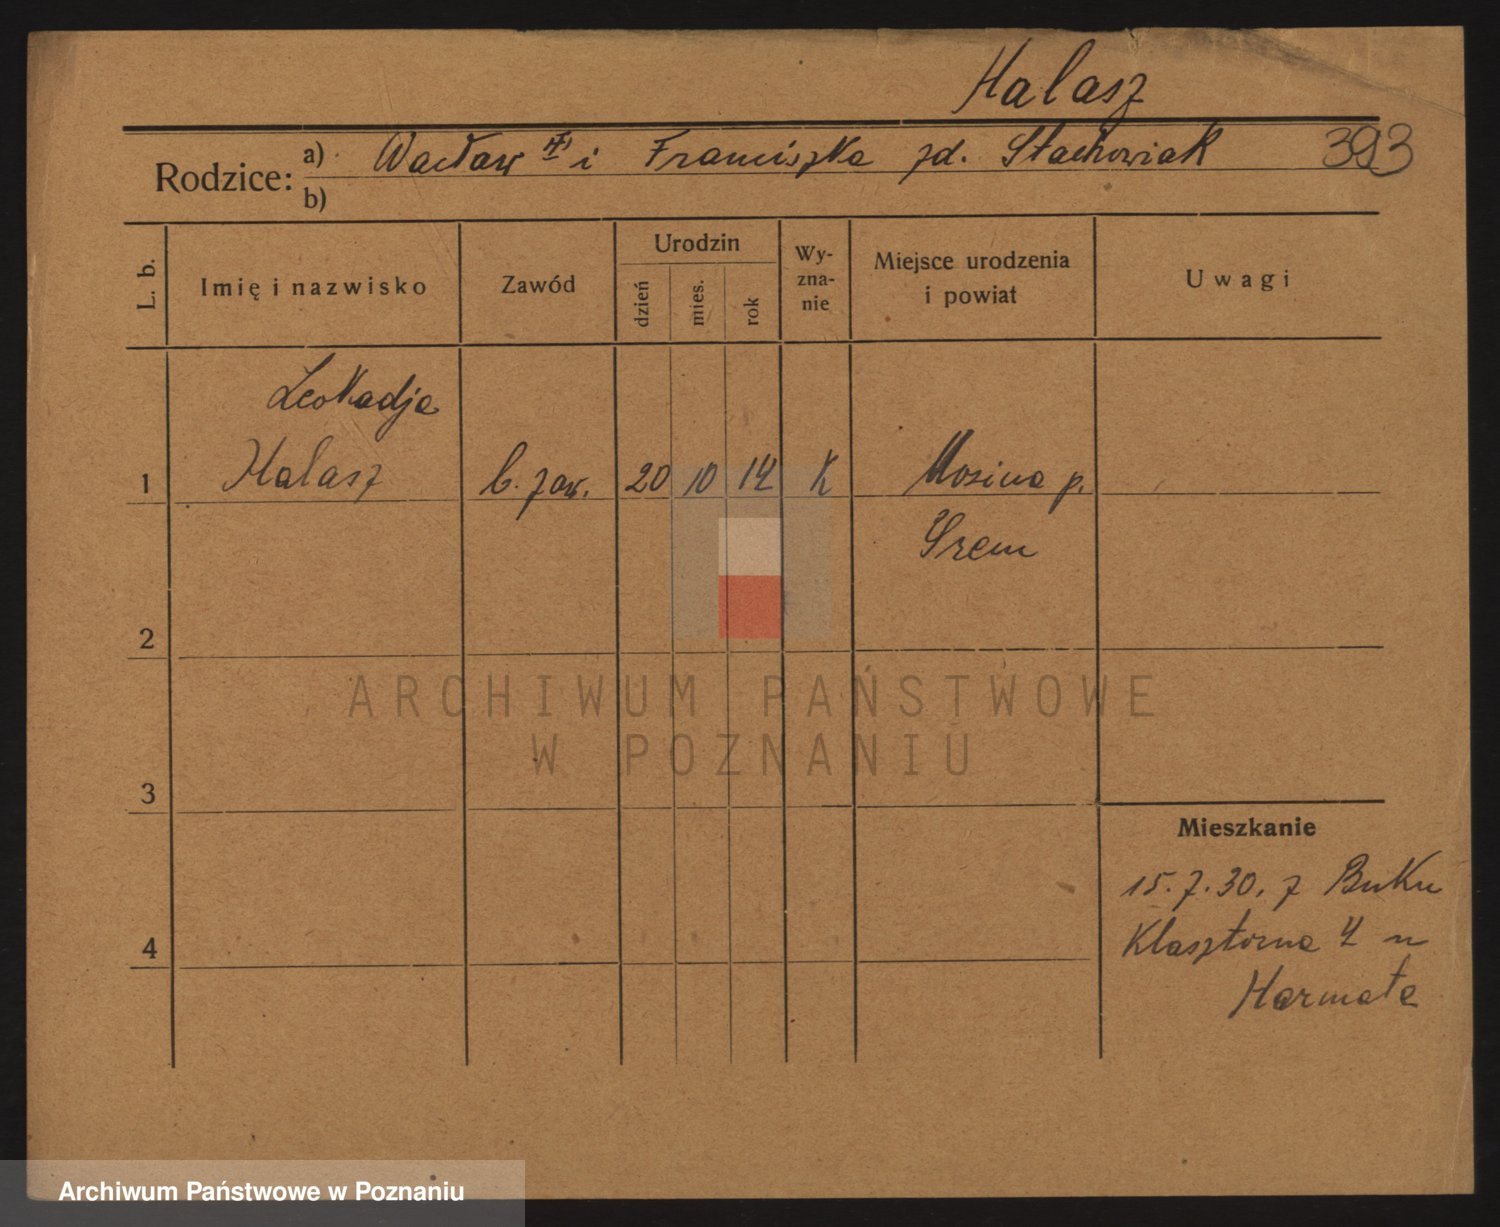 Halasz
Rodzice: a) Wacław i Franciszka zd. Stachowiak 393
b)
L. b. Imię i nazwisko Zawód Urodzin dzień mies. rok Wy-zna-nie Miejsce urodzenia i powiat Uwagi
Leokadja
1 Halasz b. zaw. 20 10 14 K Mosina p.
Srem
2
ARCHIWUM PAŃSTWOWE
W POZNANIU
3
Mieszkanie
15.7.30. z Buku
4 Klasztorna 4 u
Harmata
Archiwum Państwowe w Poznaniu